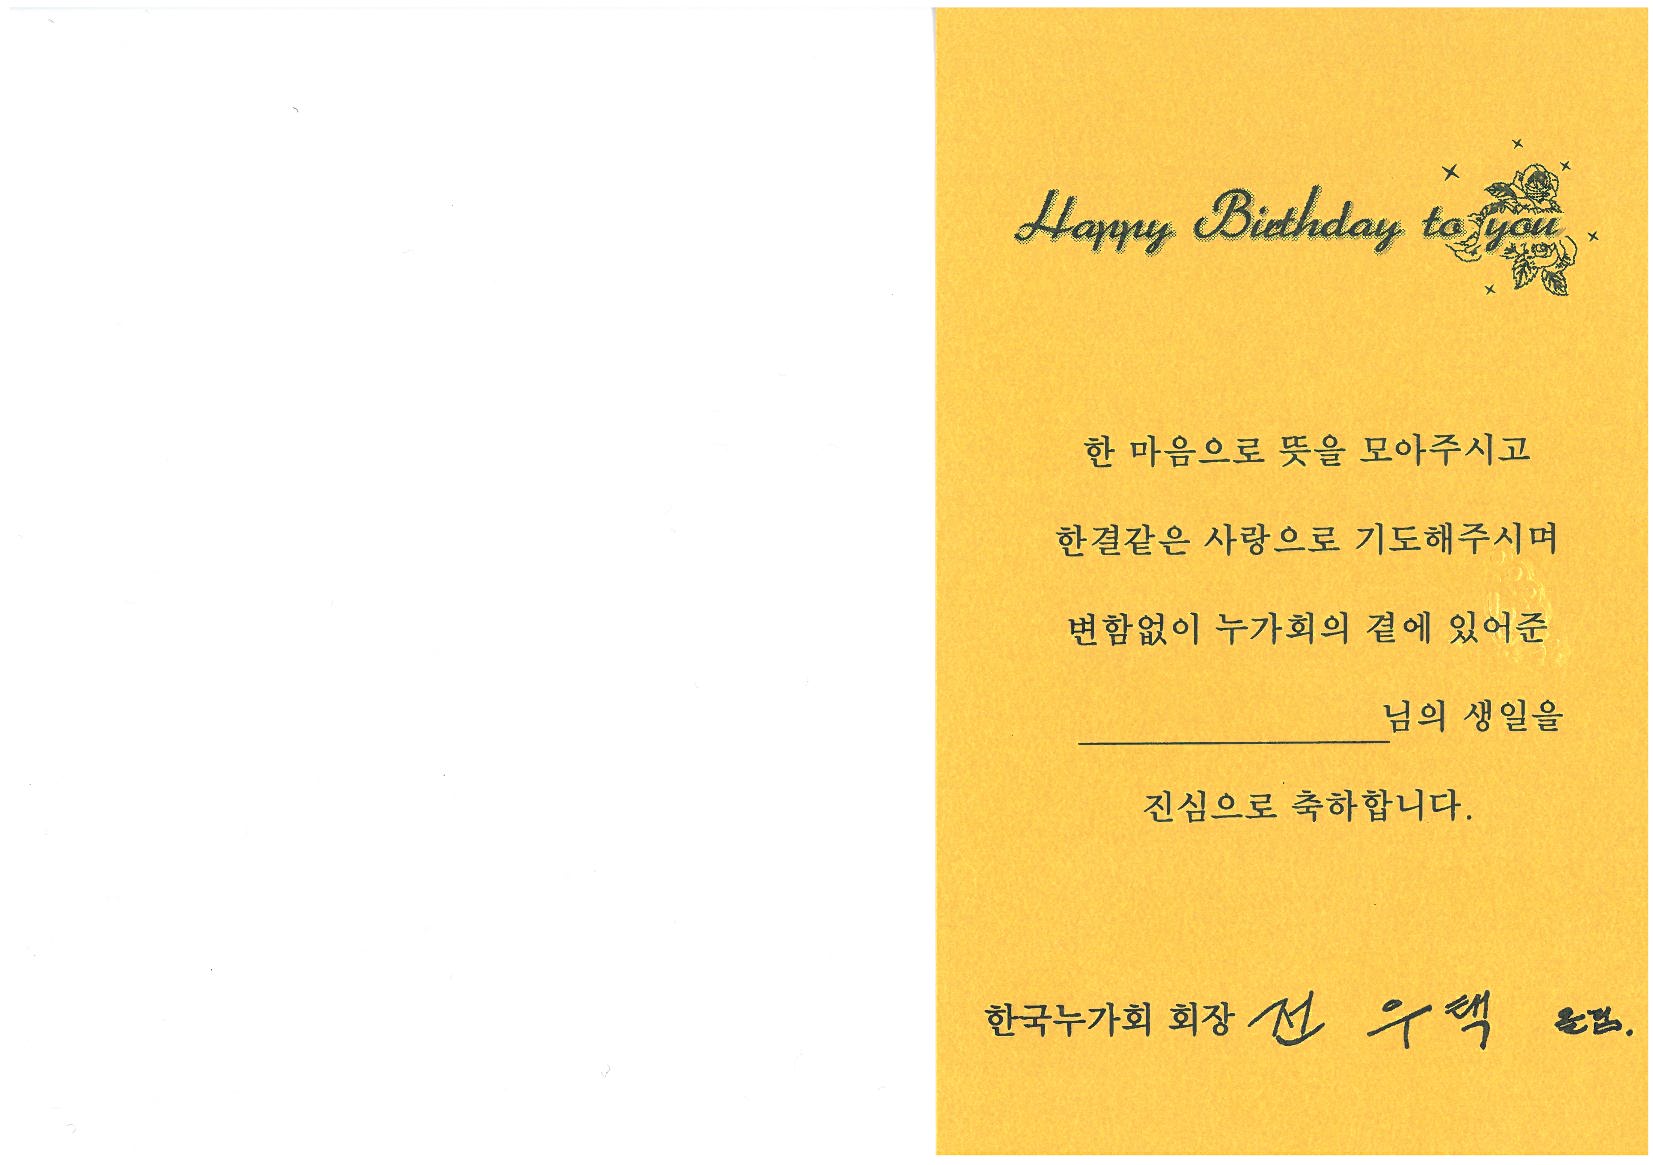 Happy Birthday to you
한 마음으로 뜻을 모아주시고
한결같은 사랑으로 기도해주시며
변함없이 누가회의 곁에 있어준
님의 생일을
진심으로 축하합니다.
한국누가회 회장 전 우택 드림.